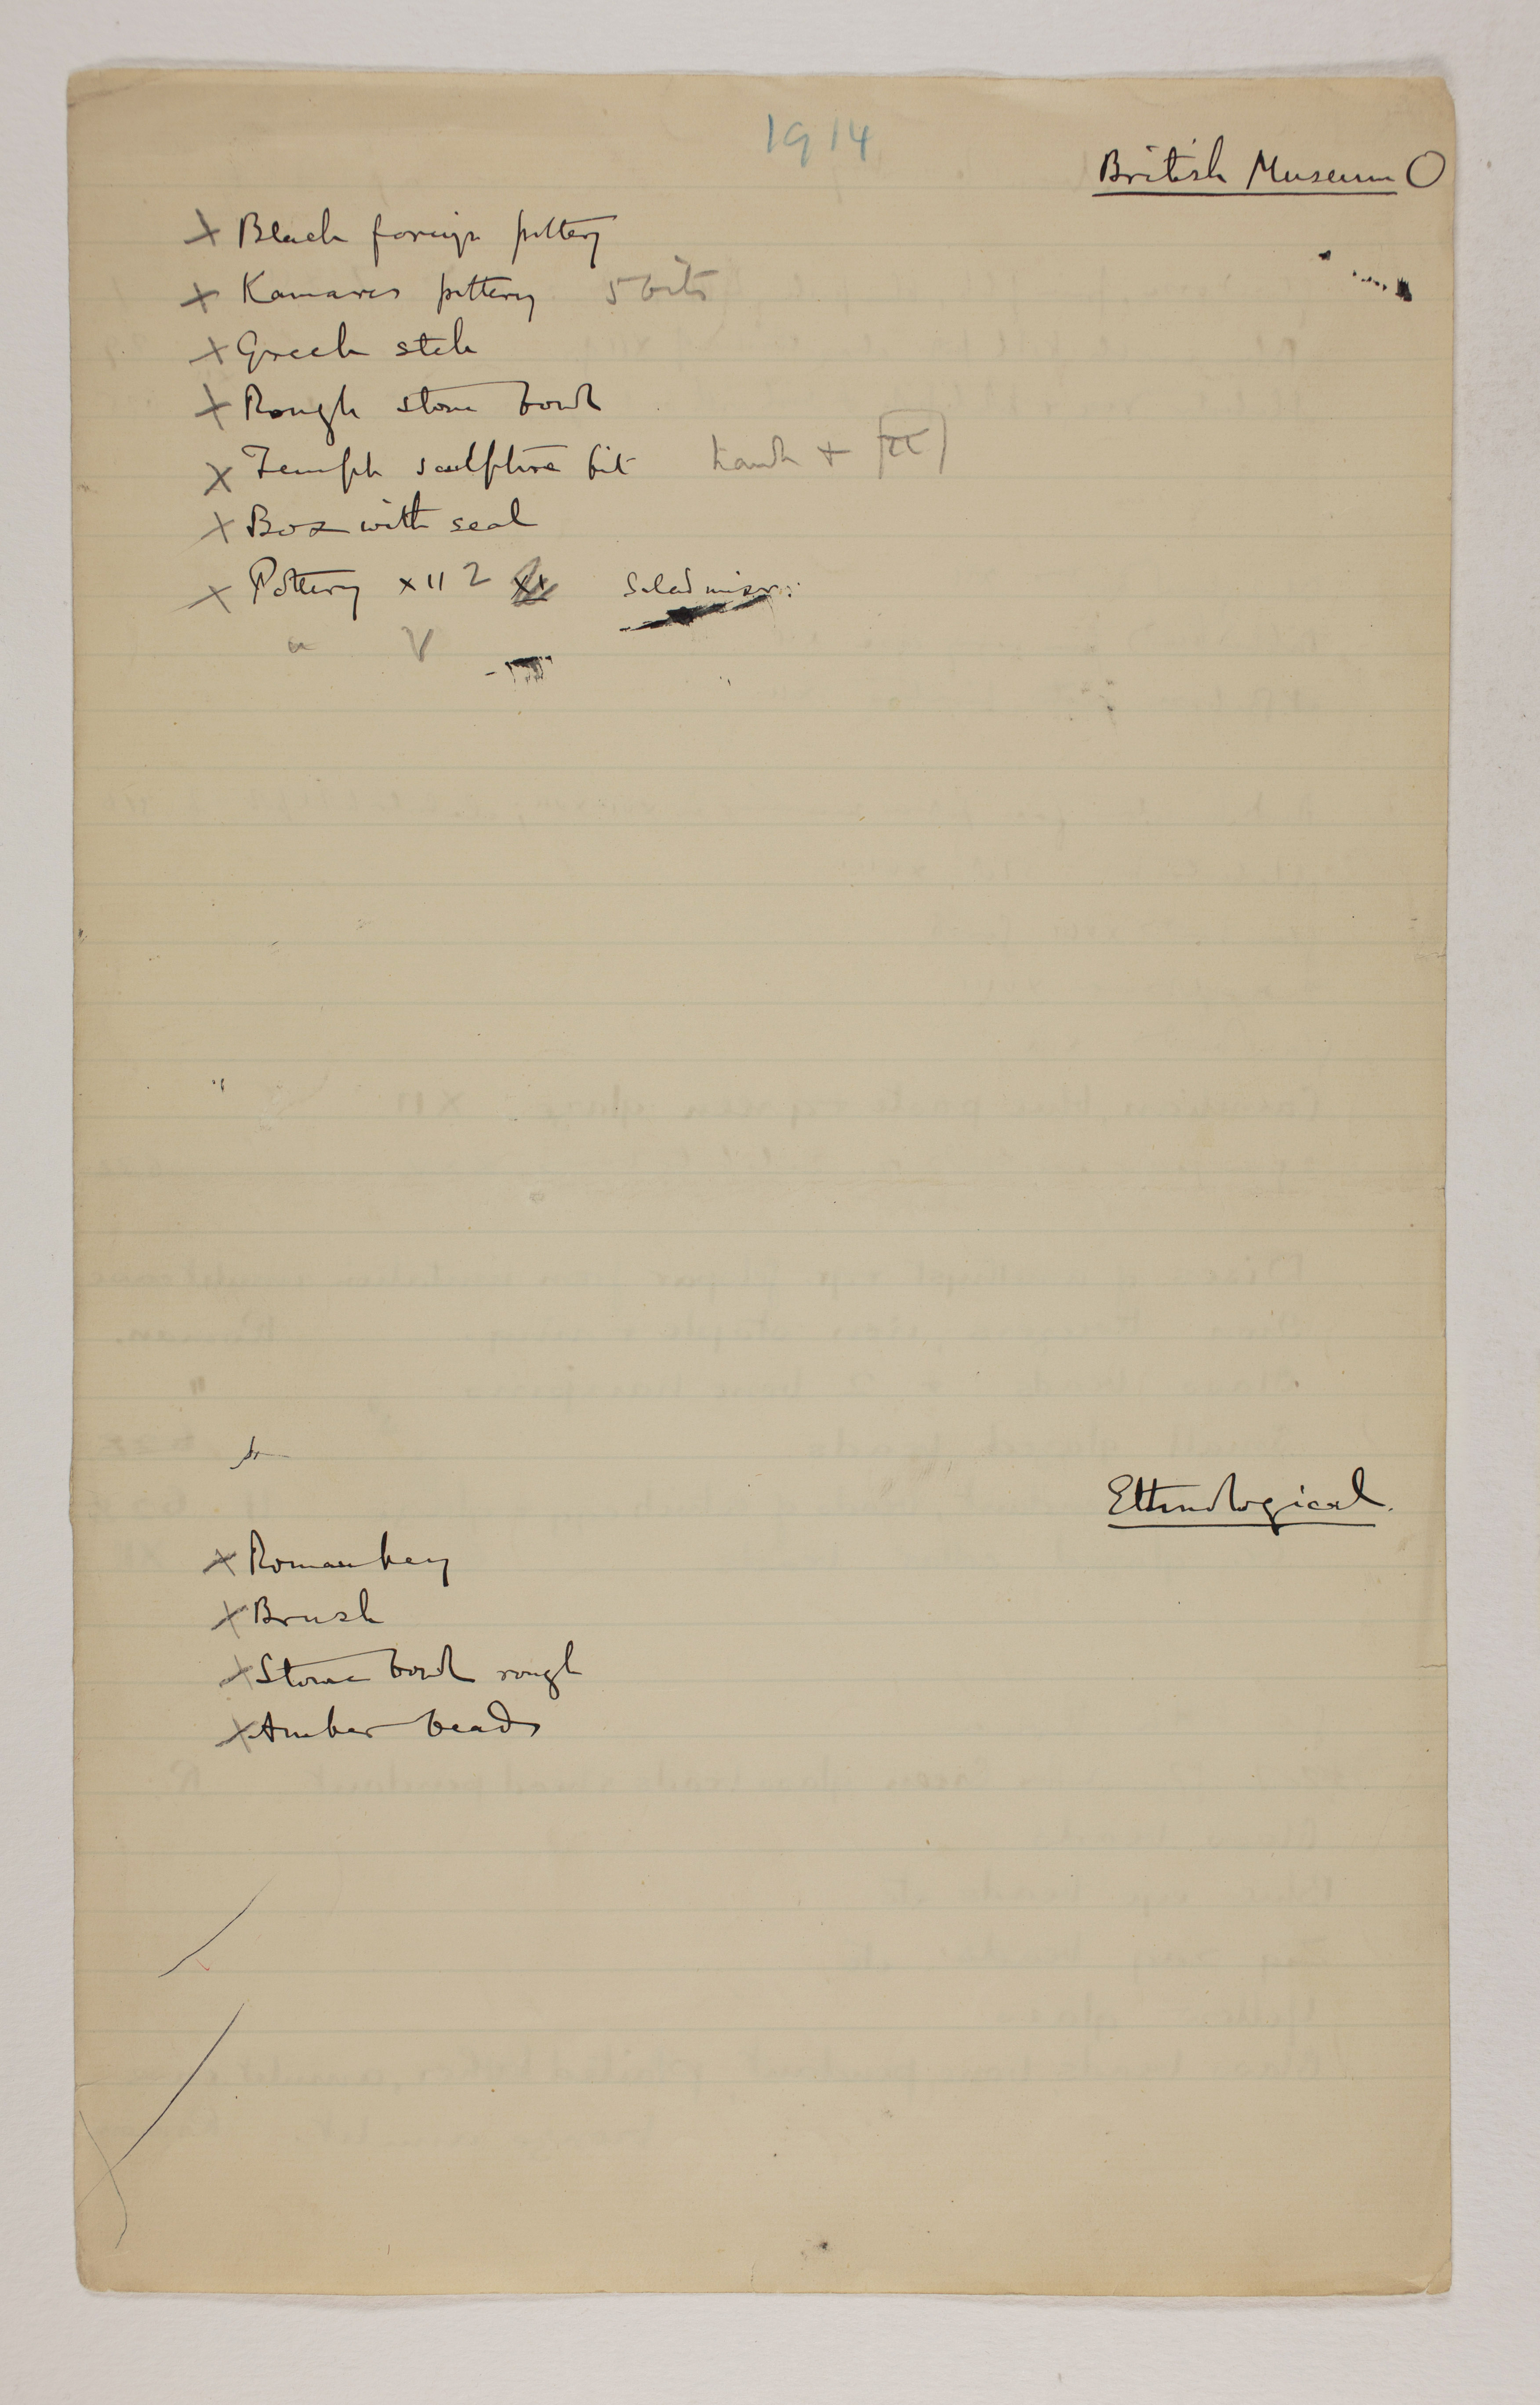 1914
British Museum O
X Black foreign pottery
X Kamares pottery 5 bits
X Greek stele
X Rough stone bowl
X Temple sculpture bit hawk +
X Box with seal
X Pottery XII 2
" V
Ethnological.
X Roman key
X Brush
X Stone bowl rough
X Amber beads